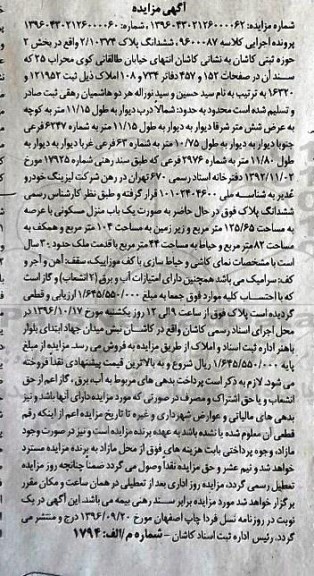 آگهی مزایده
شماره مزایده: ۱۳۹۶۰۴۳۰۲۱۲۶۰۰۰۰۶۲، شماره: ۱۳۹۶۰۴۳۰۲۱۲۶۰۰۰۰۶۰
پرونده اجرایی کلاسه ۹۶۰۰۰۸۷، ششدانگ پلاک ۲/۱۰۳۷۴ واقع در بخش ۲
حوزه ثبتی کاشان به نشانی کاشان انتهای خیابان طالقانی کوی محراب ۲۵ که
سند آن در صفحات ۱۵۲ و ۴۵۷ دفاتر ۷۳۴ و ۱۰۸ املاک ذیل ثبت ۱۲۱۹۵۲ و
۱۶۳۲۰ به ترتیب به نام سید حسین و سید نوراله هر دو هاشمیان رهقی ثبت صادر
و تسلیم شده است محدود به حدود: شمالا درب دیوار به طول ۱۱/۱۵ متر به کوچه
به عرض شش متر شرقا دیوار به دیوار به طول ۱۱/۱۵ متر به شماره ۶۲۴۷ فرعی
جنوبا دیوار به دیوار به طول ۱۰/۷۵ متر به شماره ۶۳ فرعی غربا دیوار به دیوار به
طول ۱۱/۸۰ متر به شماره ۲۹۷۶ فرعی که طبق سند رهنی شماره ۱۷۹۲۵ مورخ
۱۳۹۲/۱۱/۰۲ دفترخانه اسناد رسمی ۶۷۰ تهران در رهن شرکت لیزینگ خودرو
غدیر به شناسه ملی ۱۰۱۰۲۴۰۴۶۰۰ قرار گرفته و طبق نظر کارشناس رسمی
ششدانگ پلاک فوق در حال حاضر به صورت یک باب منزل مسکونی با عرصه
به مساحت ۱۲۵/۶۵ متر مربع و زیر زمین به مساحت ۱۰۴ متر مربع و همکف به
مساحت ۸۲ متر مربع و حیاط به مساحت ۴۴ متر مربع با قدمت ملک حدود ۳۰ سال
است با مشخصات نمای کاشی و حیاط سازی با کف موزاییک، سقف: آهن و آجر و
کف: سرامیک می باشد همچنین دارای امتیازات آب و برق (۲ انشعاب) و گاز است
که با احتساب کلیه موارد فوق جمعا به مبلغ ۱/۶۴۵/۵۵۰/۰۰۰ ارزیابی و قطعی
گردیده است پلاک فوق از ساعت ۹ الی ۱۲ روز یکشنبه مورخ ۱۳۹۶/۱۰/۱۷ در
محل اجرای اسناد رسمی کاشان واقع در کاشان نبش میدان جهاد ابتدای بلوار
باهنر اداره ثبت اسناد و املاک از طریق مزایده به فروش می رسد. مزایده از مبلغ
پایه ۱/۶۴۵/۵۵۰/۰۰۰ ریال شروع و به بالاترین قیمت پیشنهادی نقدا فروخته
می شود. لازم به ذکر است پرداخت بدهی های مربوط به آب، برق، گاز اعم از حق
انشعاب و یا حق اشتراک و مصرف در صورتی که مورد مزایده دارای آنها باشد و نیز
بدهی های مالیاتی و عوارض شهرداری و غیره تا تاریخ مزایده اعم از اینکه رقم
قطعی آن معلوم شده یا نشده باشد به عهده برنده مزایده است و نیز در صورت وجود
مازاد، وجوه پرداختی بابت هزینه های فوق از محل مازاد به برنده مزایده مسترد
خواهد شد و نیم عشر و حق مزایده نقدا وصول می گردد ضمنا چنانچه روز مزایده
تعطیل رسمی گردد، مزایده روز اداری بعد از تعطیلی در همان ساعت و مکان مقرر
برگزار خواهد شد مورد مزایده برابر سند رهنی بیمه می باشد. این آگهی در یک
نوبت در روزنامه نسل فردا چاپ اصفهان مورخ ۱۳۹۶/۰۹/۲۰ درج و منتشر می
گردد. رئیس اداره ثبت اسناد کاشان - شماره م/الف: ۱۷۹۴